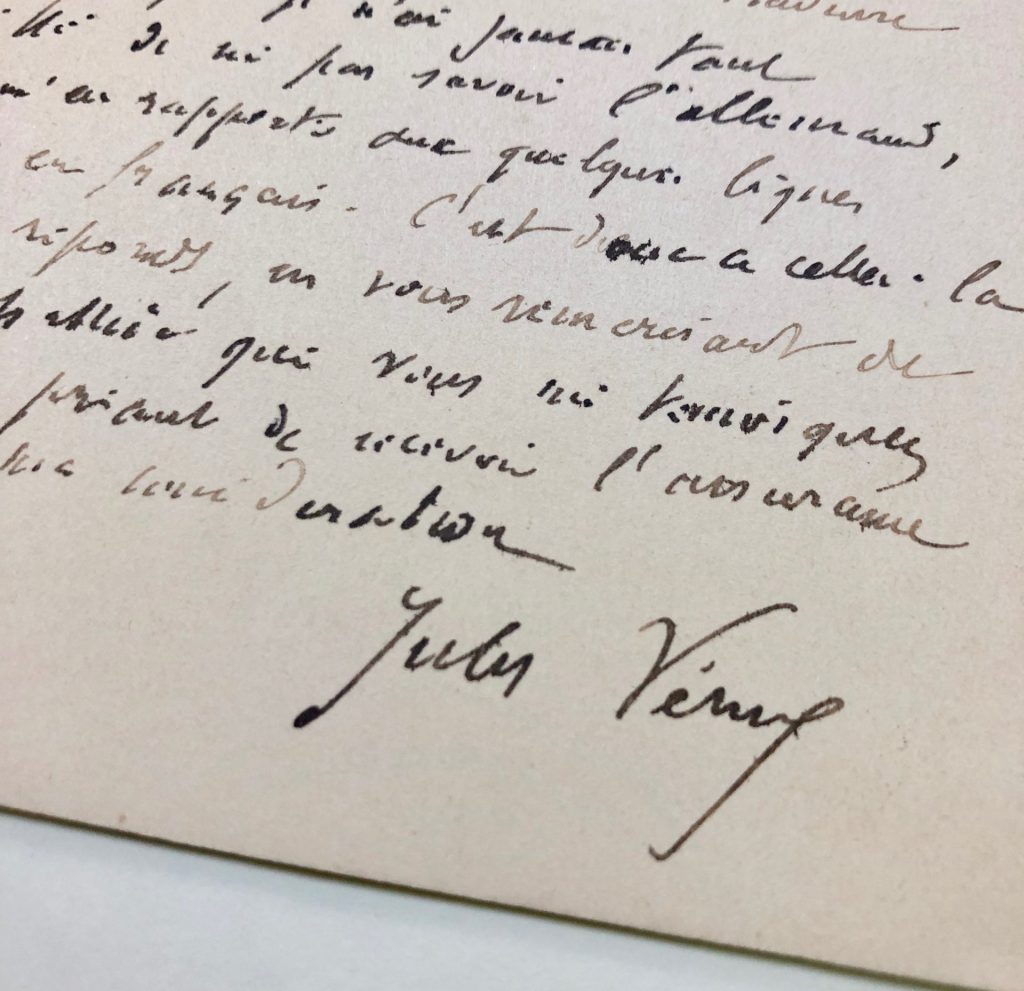 je n'ai jamais tant
de ne pas savoir l'allemand,
m'en rapporte aux quelques lignes
en français. C'est donc à celles-là
réponds, en vous remerciant de
que vous me témoignez
priant de recevoir l'assurance
ma considération
Jules Verne